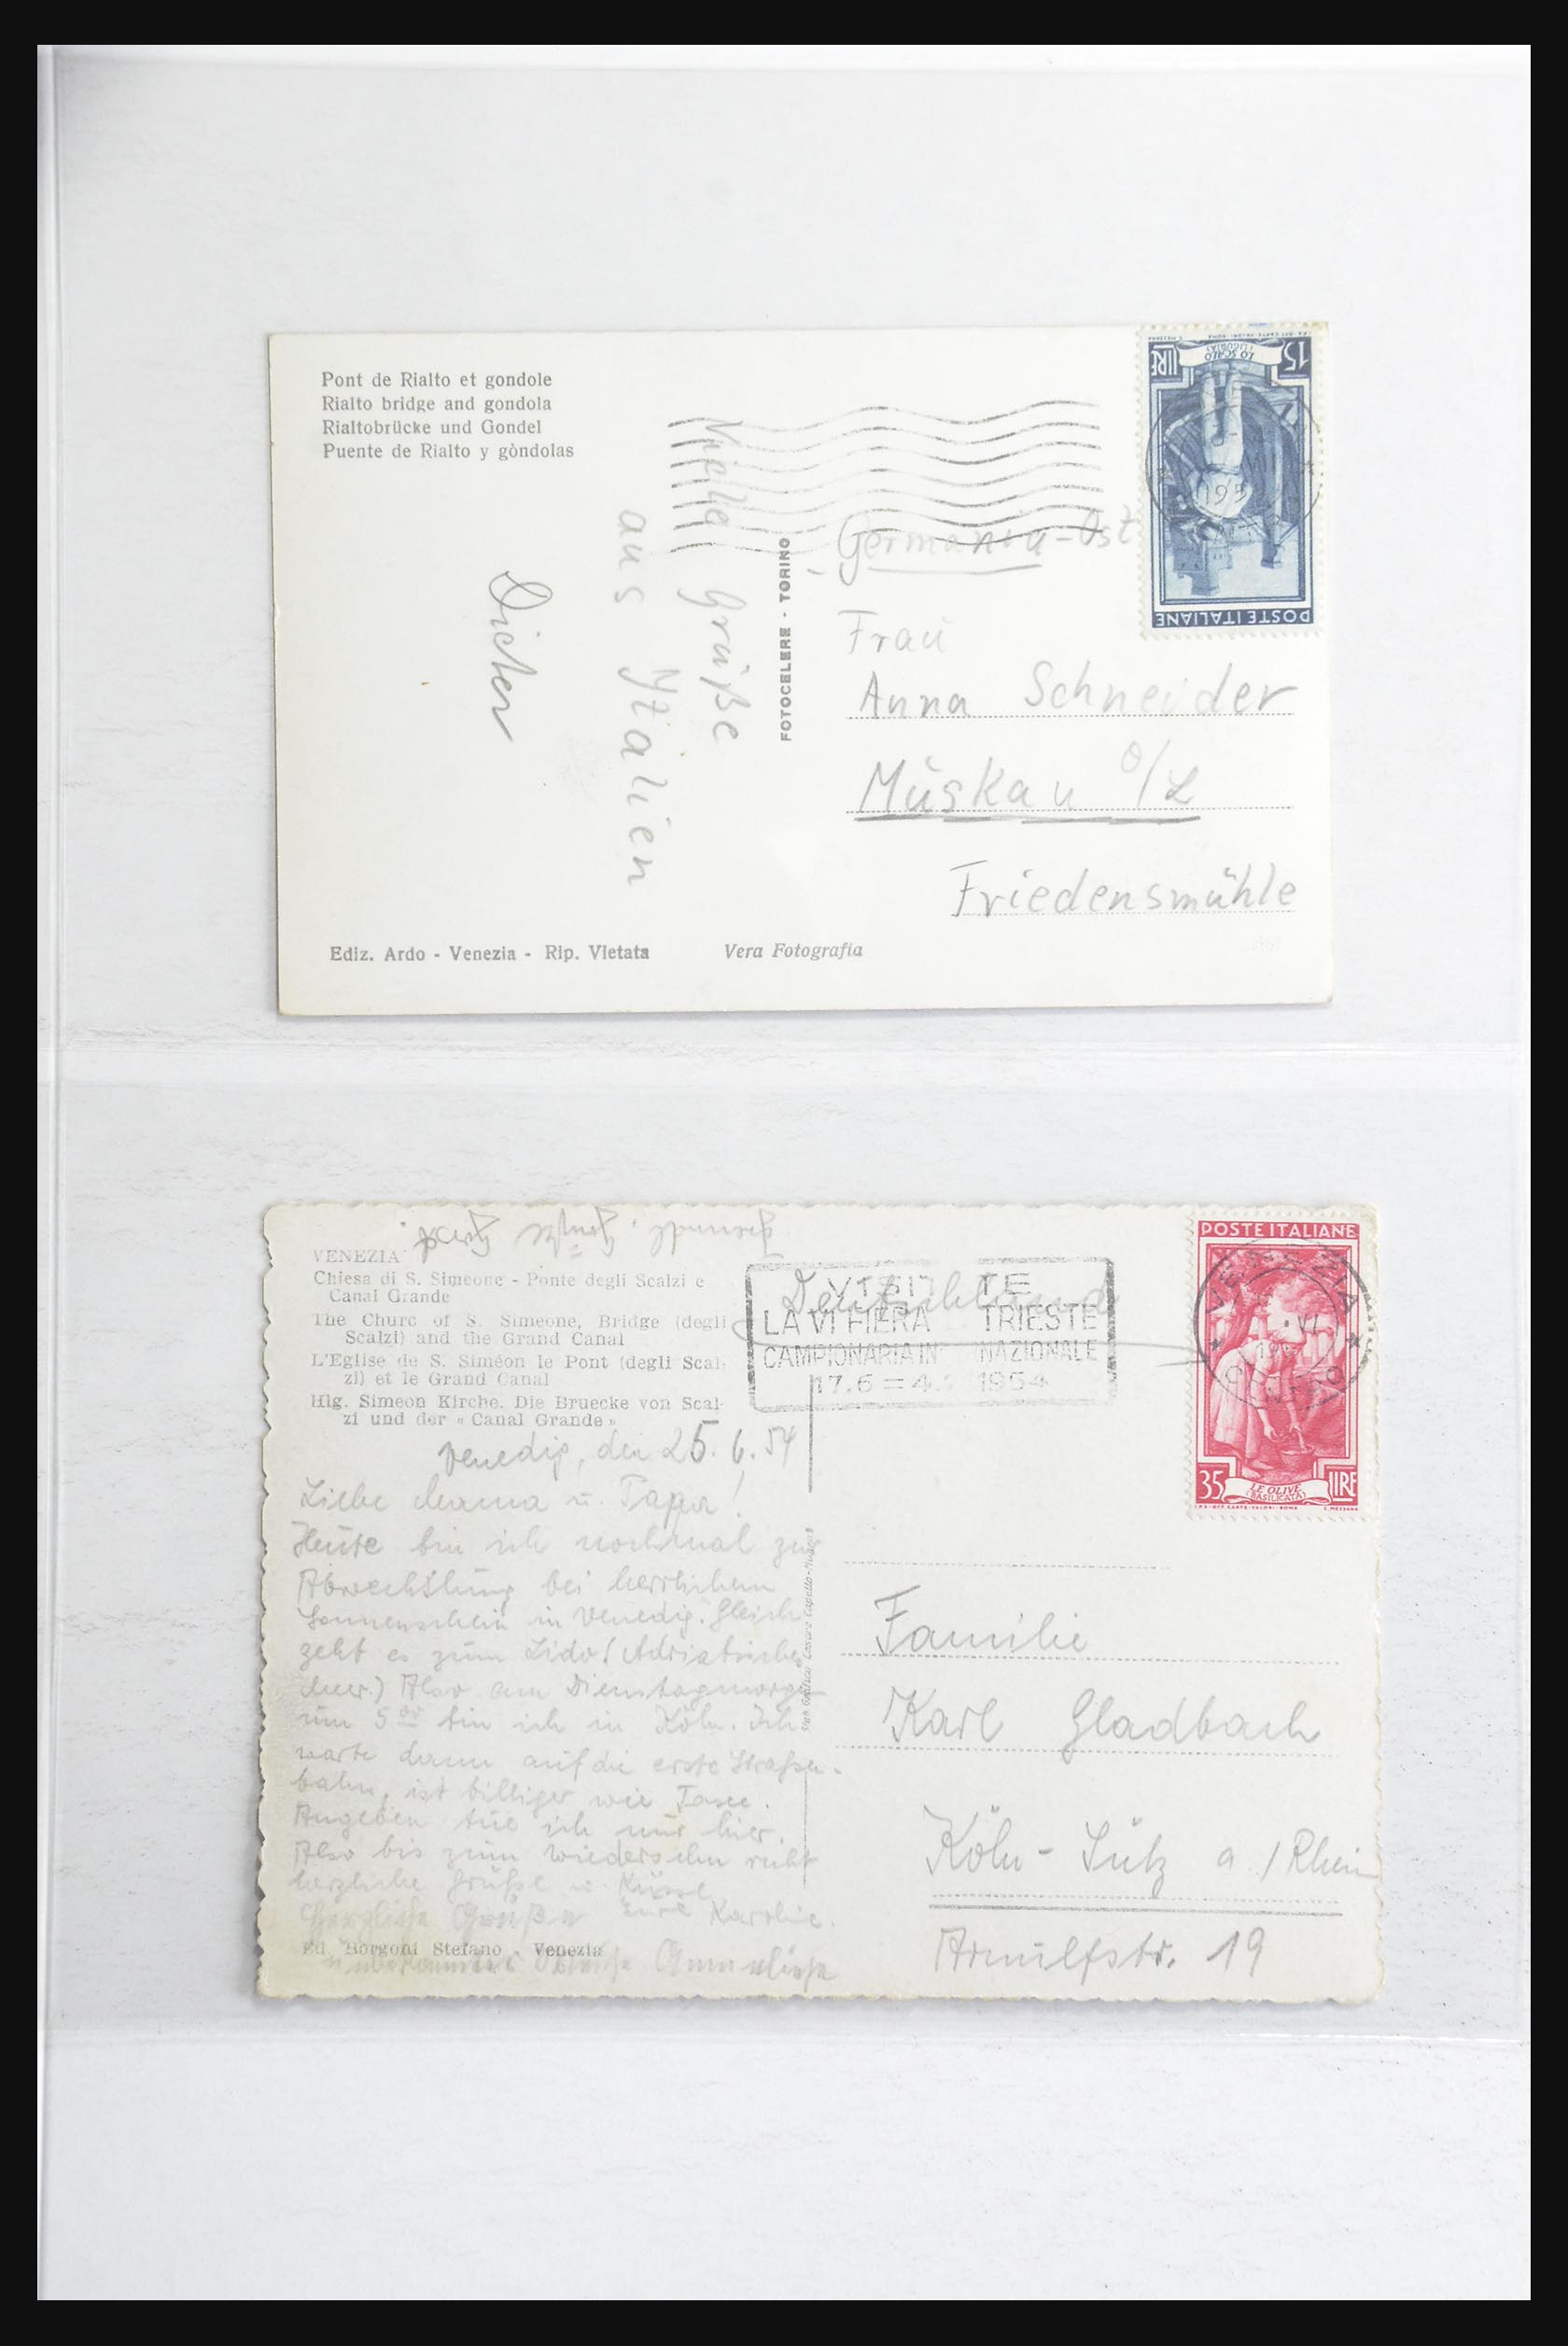 Pont de Rialto et gondole
Rialto bridge and gondola
Rialtobrücke und Gondel
Puente de Rialto y gòndolas
Viele Grüße
aus Italien
Dieter
FOTOCELERE - TORINO
15 LIRE
LO SCALO
(LIGURIA)
POSTE ITALIANE
195
Germania-Ost
Frau
Anna Schneider
Muskau O/L
Friedensmühle
Ediz. Ardo - Venezia - Rip. Vietata
Vera Fotografia
VENEZIA
Chiesa di S. Simeone - Ponte degli Scalzi e
Canal Grande
The Churc of S. Simeone, Bridge (degli
Scalzi) and the Grand Canal
L'Eglise de S. Siméon le Pont (degli Scal-
zi) et le Grand Canal
Hlg. Simeon Kirche. Die Bruecke von Scal-
zi und der « Canal Grande »
Venedig, den 25.6.54
Liebe Mama u. Papa!
Heute bin ich nochmal zur
Abwechslung bei herrlichem
Sonnenschein in Venedig. Gleich
geht es zum Lido (Adriatisches
Meer.) Also am Dienstagmorgen
um 5 00 bin ich in Köln. Ich
warte dann auf die erste Straßen-
bahn, ist billiger wie Taxe.
Angeben tue ich nur hier.
Also bis zum Wiedersehn
herzliche Grüße u. Küsse
Eure Karoline.
Herzliche Grüße
Ed. Borgoni Stefano - Venezia
Deutschland
VISITATE
LA VI FIERA TRIESTE
CAMPIONARIA IN NAZIONALE
17.6 = 4. 1954
POSTE ITALIANE
VENEZIA
VI
35 LIRE
LE OLIVE
(BASILICATA)
Familie
Karl Gladbach
Köln - Sülz a./Rhein
Arnulfstr. 19